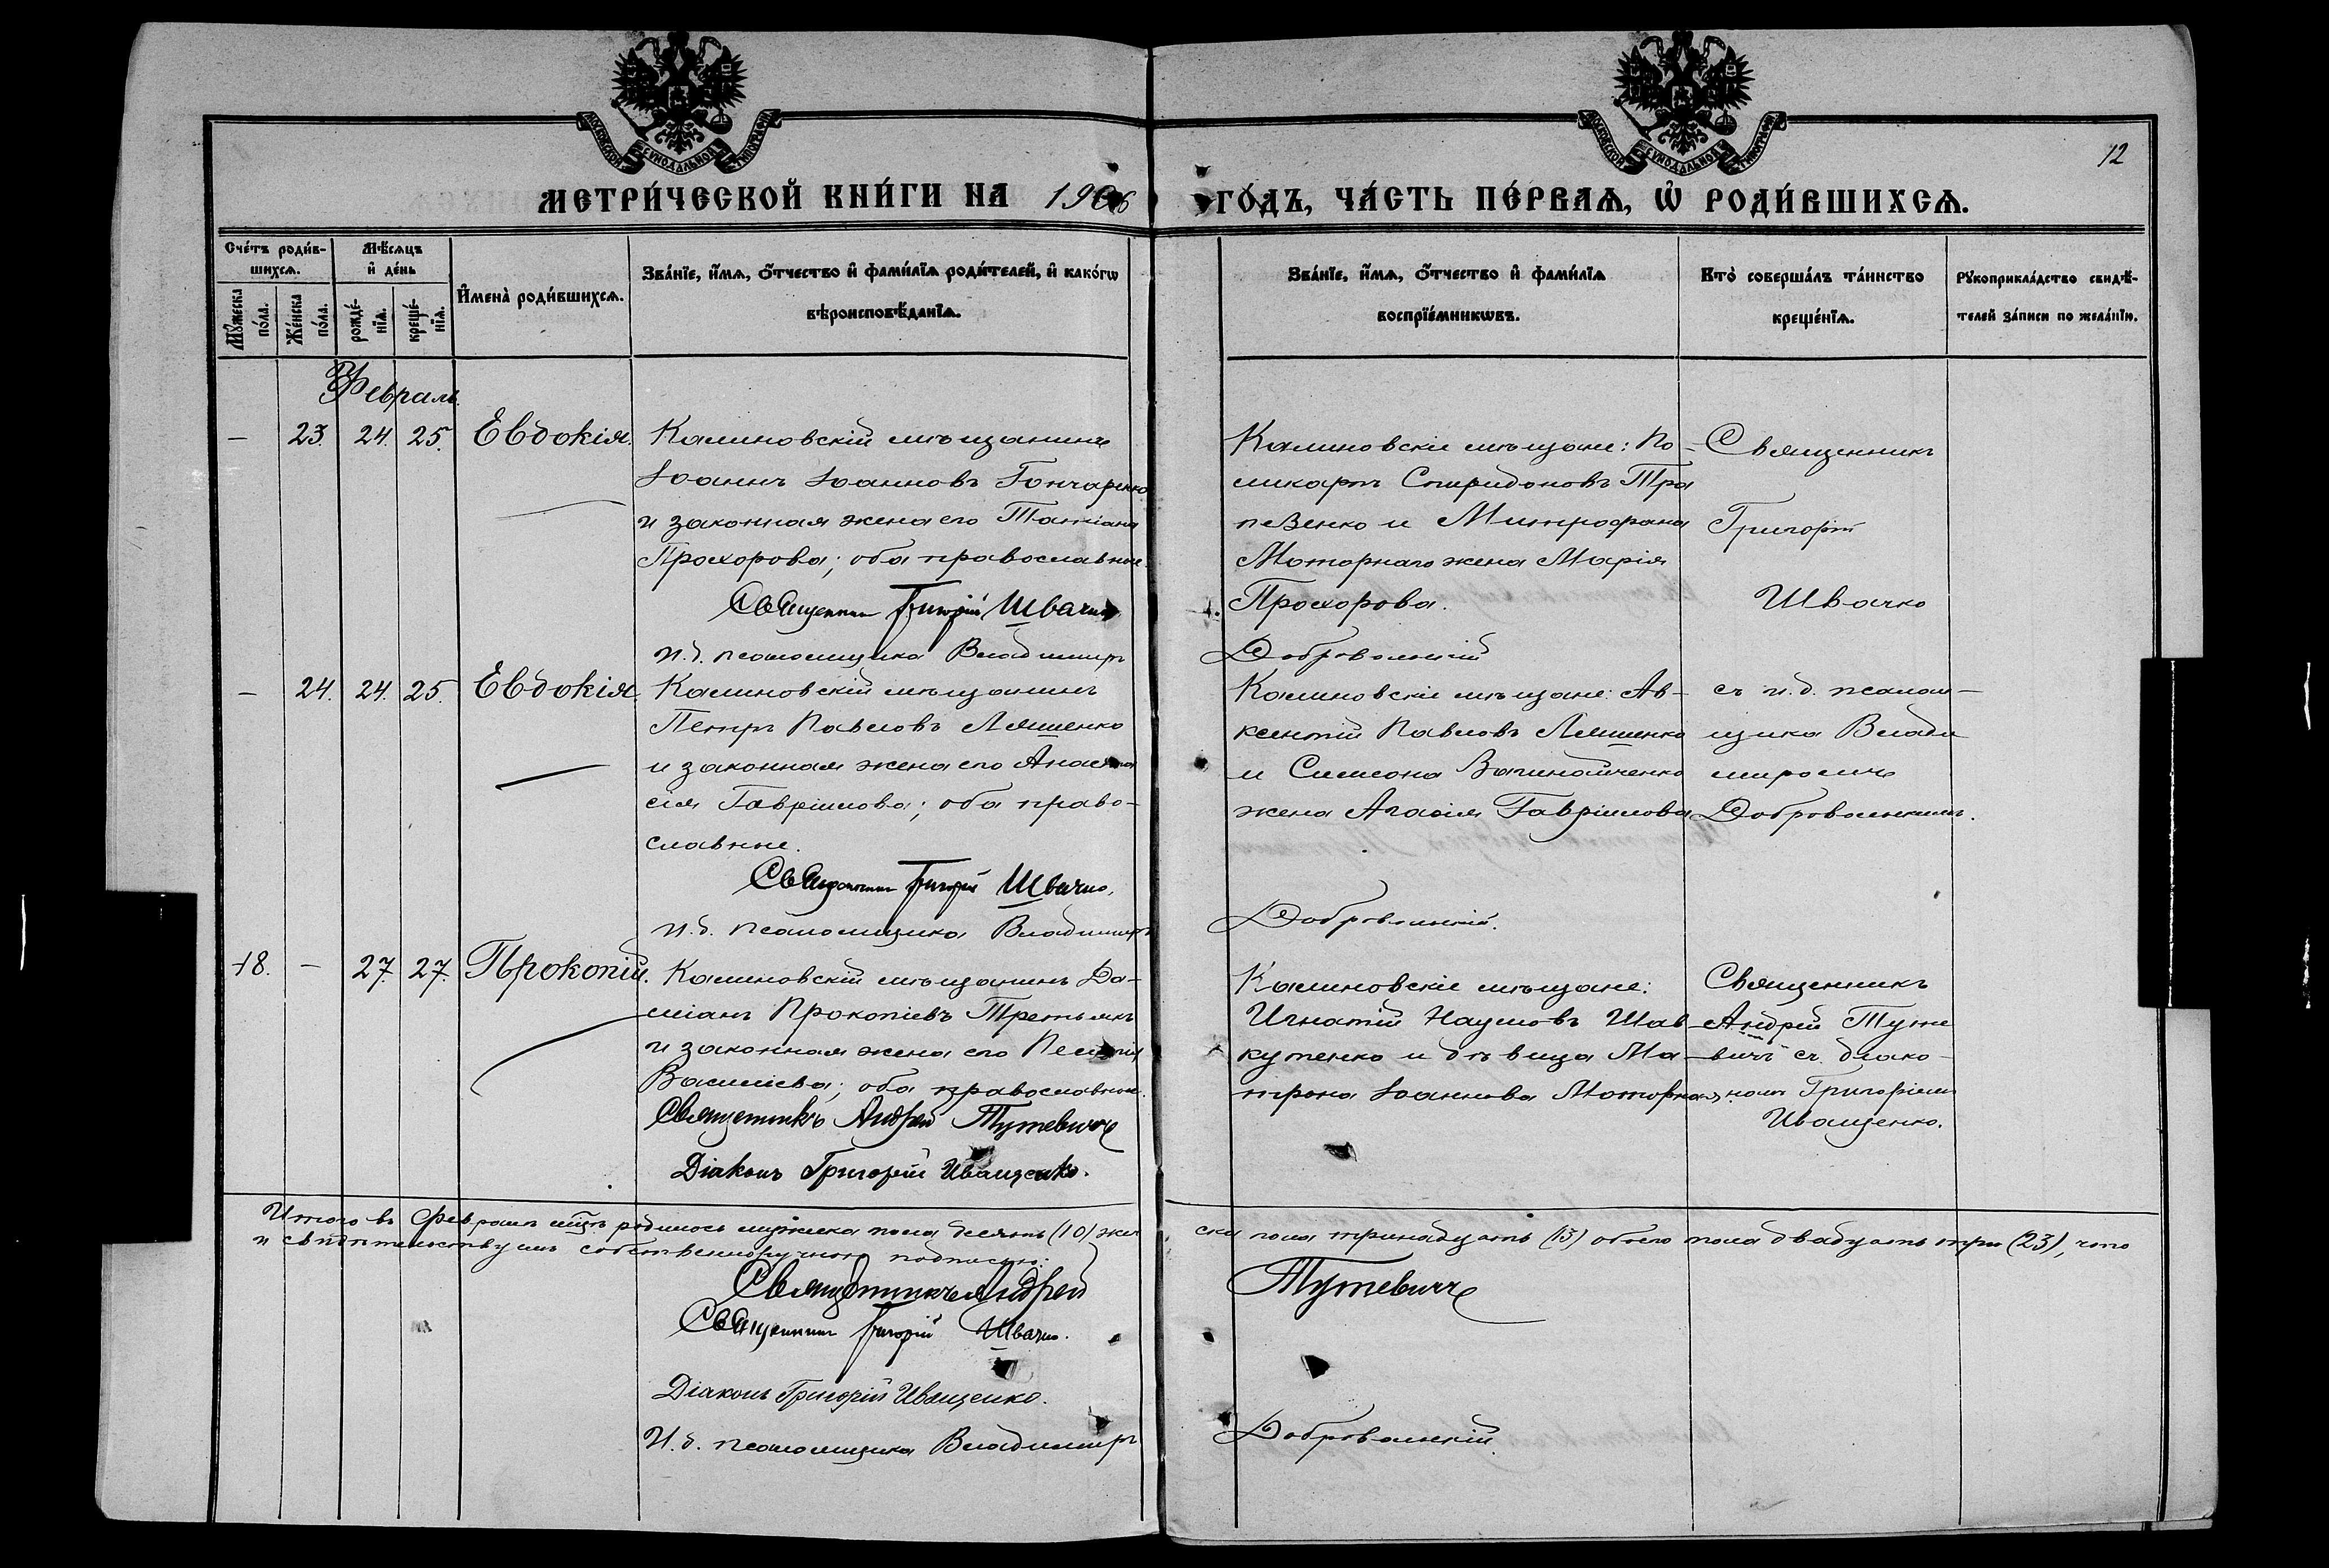 МОСКОВСКОЙ СУНОДАЛЬНОЙ ТИПОГРАФІИ
МОСКОВСКОЙ СУНОДАЛЬНОЙ ТИПОГРАФІИ
12
МЕТРИ́ЧЕСКОЙ КНИ́ГИ НА 1906
ГО́ДЪ, ЧА́СТЬ ПЕ́РВАѦ, Ѡ҆ РОДИ́ВШИХСѦ.
Сче́тъ роди́в-
шихсѧ.
Мꙋ́жеска
по́ла.
Же́нска
по́ла.
Мѣ́сѧцъ
и҆ де́нь
рожде́-
нїѧ.
креще́-
нїѧ.
И҆мена̀ роди́вшихсѧ.
Зва́нїе, и҆́мѧ, ѻ҆́тчество и҆ фами́лїѧ роди́телей, и҆ како́гѡ
вѣроисповѣ́данїѧ.
Зва́нїе, и҆́мѧ, ѻ҆́тчество и҆ фами́лїѧ
воспрїе́мникѡвъ.
Кто̀ соверша́лъ та́инство
креще́нїѧ.
Рꙋкоприкла́дство свидѣ́-
телей за́писи по жела́нїю.
Февраль.
— 23. 24. 25. Евдокія.
Калиновскій мѣщанинъ
Іоаннъ Іоанновъ Гончаренко
и законная жена его Татіана
Прохорова; оба православные.
Священникъ Григорій Швачко
и.д. псаломщика Владимиръ
Калиновскіе мѣщане: По-
ликарпъ Спиридоновъ Тра
пезенко и Митрофана
Моторнаго жена Марія
Прохорова.
Добровольскій
Священникъ
Григорій
Швачко
— 24. 24. 25. Евдокія.
Калиновскій мѣщанинъ
Петръ Павловъ Ляшенко
и законная жена его Анаста
сія Гавріилова; оба право-
славные.
Священникъ Григорій Швачко.
и.д. псаломщика Владимиръ
Калиновскіе мѣщане: Ав-
ксентій Павловъ Ляшенко
и Симеона
жена Агафія Гавріилова
Добровольскій.
съ и.д. псалом-
щика Влади
миромъ
Добровольскимъ.
18. — 27. 27. Прокопій.
Калиновскій мѣщанинъ Да-
міанъ Прокопіевъ Третьякъ
и законная жена его Пелагія
Васильева; оба православные.
Священникъ Андрей Тутевичъ
Діаконъ Григорій Иващенко.
Калиновскіе мѣщане:
Игнатій Наумовъ Шав-
кутенко и дѣвица Ма-
трона Іоаннова Моторная
Священникъ
Андрей Туте
вичъ съ діако-
номъ Григоріемъ
Иващенко.
Итого въ Февралѣ мѣсяцѣ родилось мужеска пола десять (10) жен
ска пола тринадцать (13) обоего пола двадцать три (23), что
и свидѣтельствуемъ собственноручною подписью:
Священникъ Андрей
Тутевичъ
Священникъ Григорій Швачко.
Діаконъ Григорій Иващенко.
И.д. псаломщика Владимиръ
Добровольскій.